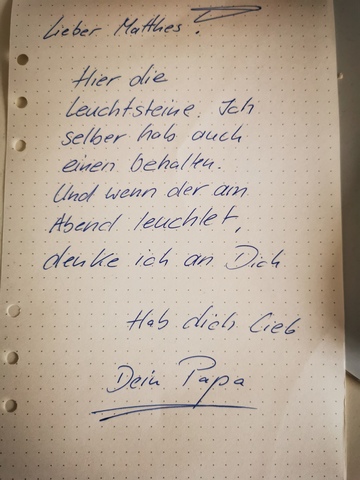 Lieber Matthes!
Hier die
Leuchtsteine. Ich
selber hab auch
einen behalten.
Und wenn der am
Abend leuchtet,
denke ich an Dich
Hab dich lieb
Dein Papa